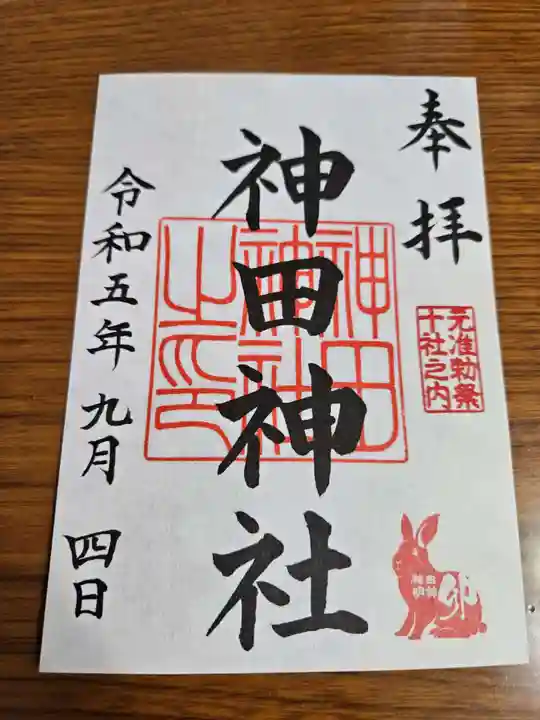 奉拝
元准勅祭
十社之内
卯
神田
明神
神田神社
神田
神社
之印
令和五年九月四日